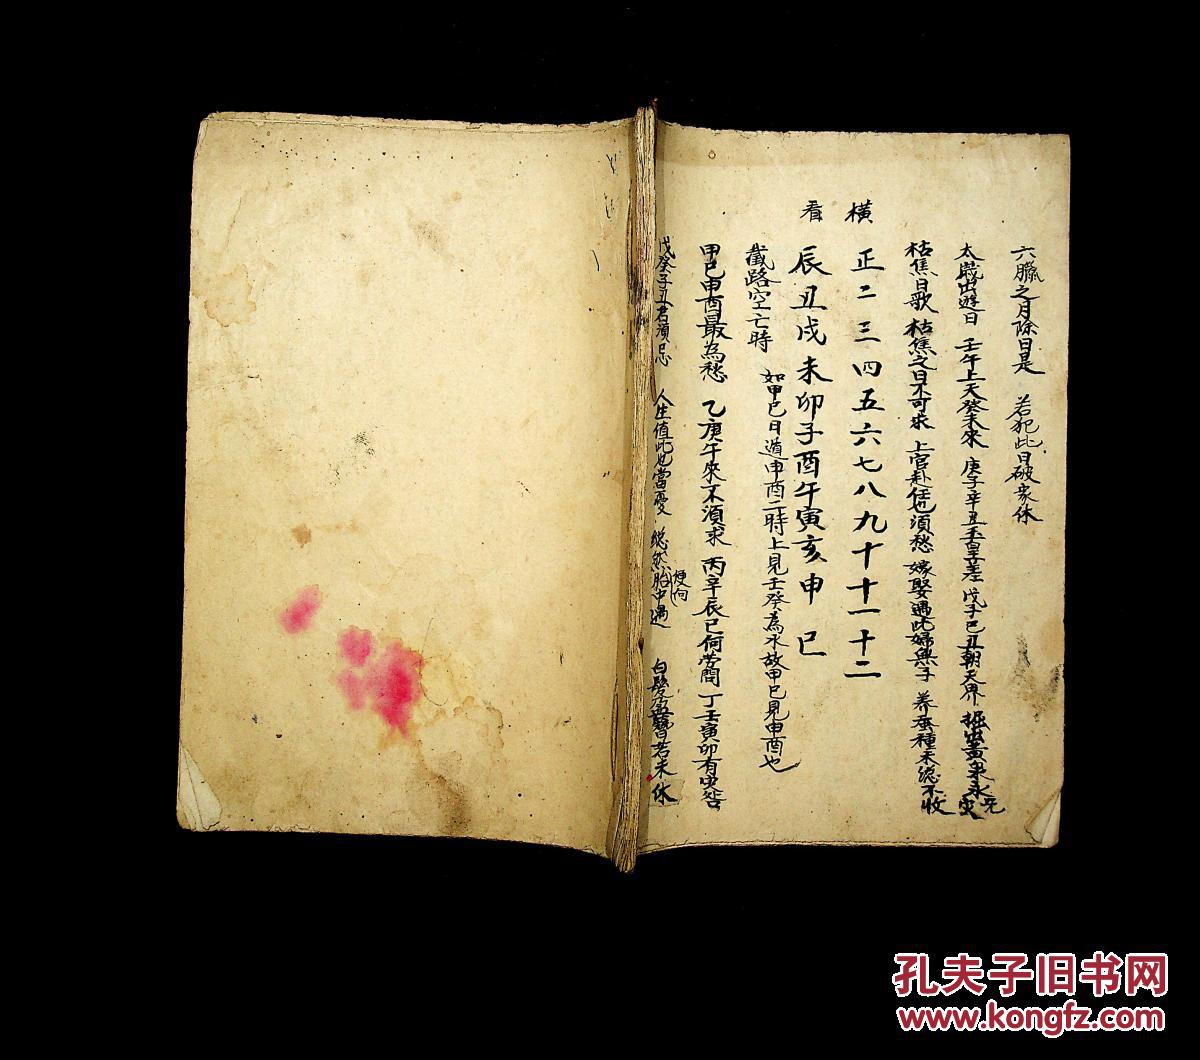 六臘之月除日是 若犯此日破家休
太歲出遊日 壬午上天癸未來 庚子辛丑玉皇差 戊子己丑朝天界 掘出黃泉永無災
枯焦日歌 枯焦之日不可求 上官赴任也須愁 嫁娶遇此婦無子 養蚕種禾總不收
橫看
正二三四五六七八九十十一十二
辰丑戌未卯子酉午寅亥申巳
截路空亡時 如甲己日遁申酉二時上見壬癸為水故甲己見申酉也
甲己申酉最為愁 乙庚午未不須求 丙辛辰巳何勞問 丁壬寅卯有災咎
戊癸子丑君須忌 人生值此也當憂 總然胎中遇 便向 白髮盈簪苦未休
孔夫子旧书网
www.kongfz.com